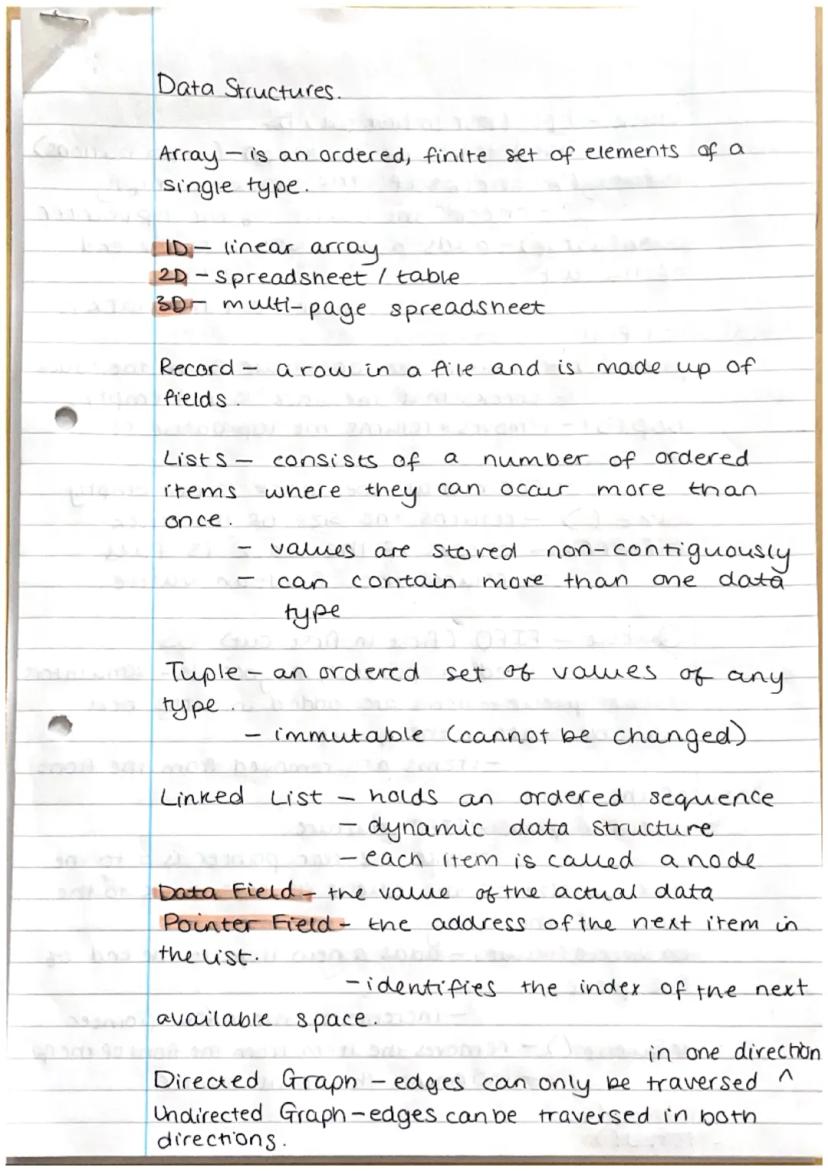 Data Structures.
Array – is an ordered, finite set of elements of a
single type.
1D – linear array
2D – spreadsheet / table
3D – multi-page spreadsheet
Record – a row in a file and is made up of
fields.
Lists – consists of a number of ordered
items where they can occur more than
once.
– values are stored non-contiguously
– can contain more than one data
type
Tuple – an ordered set of values of any
type.
– immutable (cannot be changed)
Linked List – holds an ordered sequence
– dynamic data structure
– each item is called a node
Data Field – the value of the actual data
Pointer Field – the address of the next item in
the list.
– identifies the index of the next
available space.
in one direction
Directed Graph – edges can only be traversed ^
Undirected Graph – edges can be traversed in both
directions.